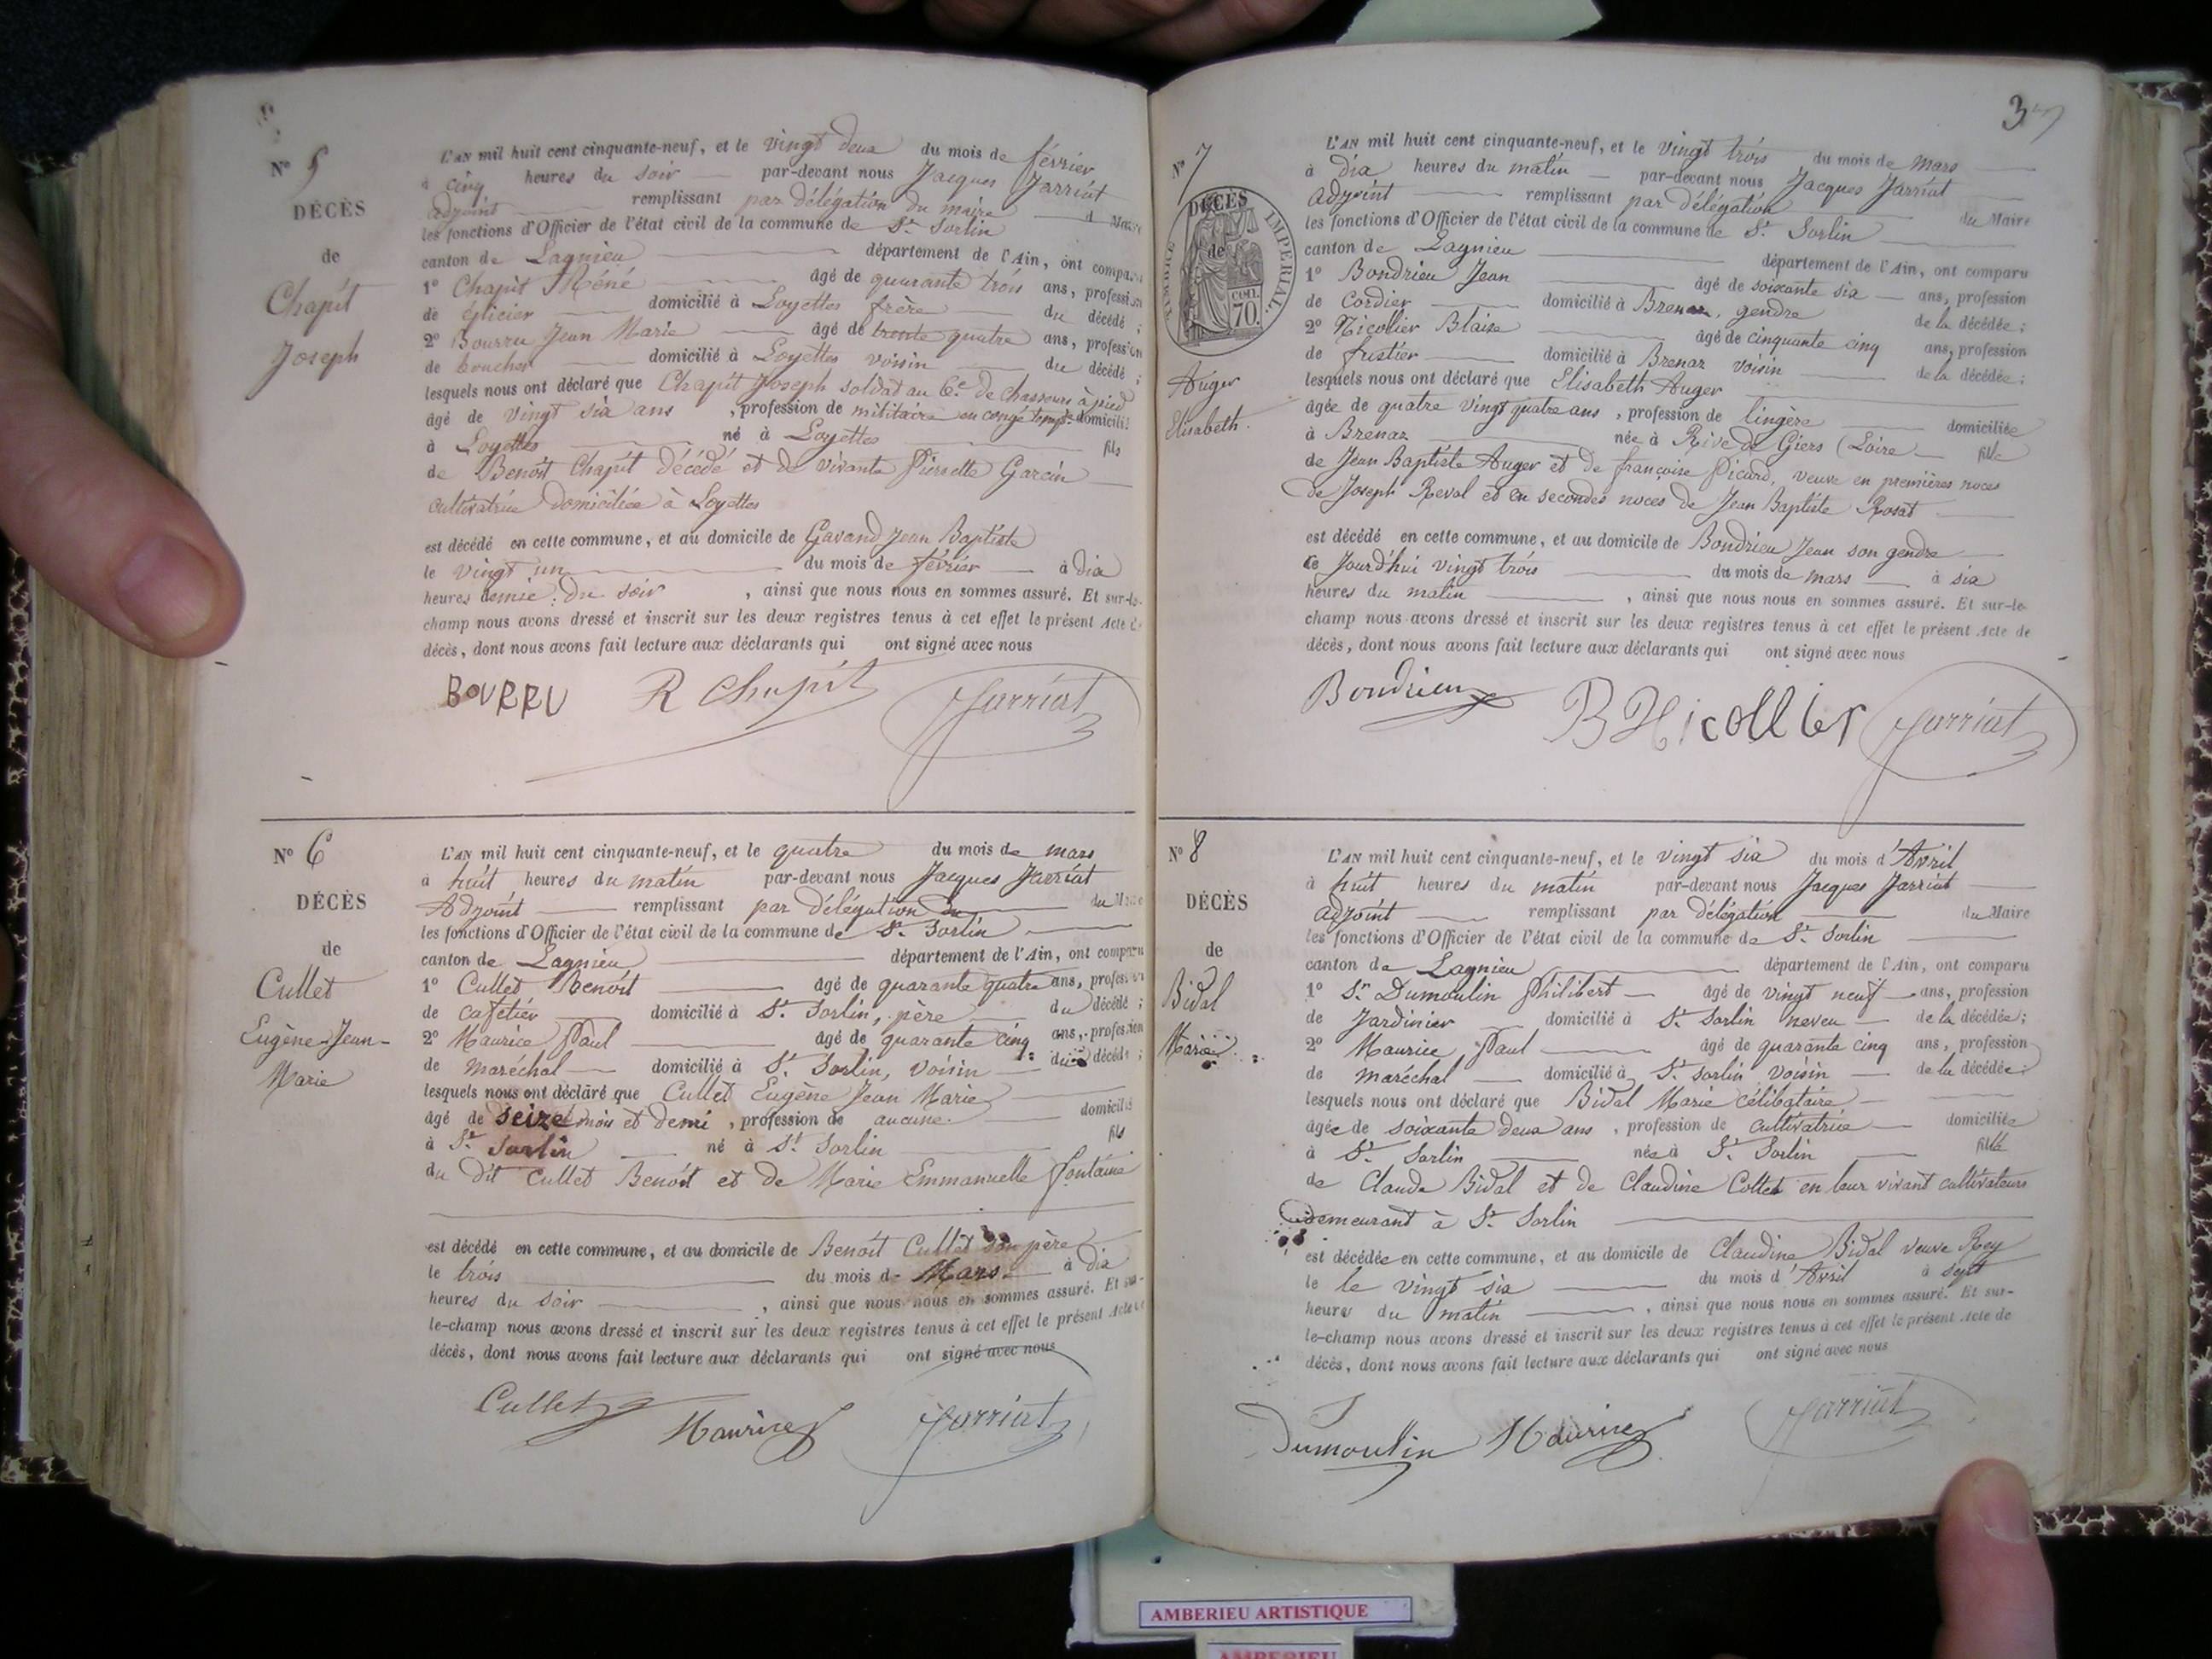 Nº 5
DÉCÈS
de
Chapit
Joseph
L'AN mil huit cent cinquante-neuf, et le vingt deux du mois de février
à cinq heures du soir par-devant nous Jacques Jarriat
adjoint remplissant par délégation du maire d Maire
les fonctions d'Officier de l'état civil de la commune de St. Sorlin
canton de Lagnieu département de l'Ain, ont compa
1º Chapit Réné âgé de quarante trois ans, profession
de épicier domicilié à Loyettes frère du décédé ;
2º Bourru Jean Marie âgé de trente quatre ans, profession
de boucher domicilié à Loyettes voisin du décédé ;
lesquels nous ont déclaré que Chapit Joseph soldat au 6e. de chasseurs à pied
âgé de vingt six ans , profession de militaire en congé temp. domicili
à Loyettes né à Loyettes fils
de Benoit Chapit décédé et de vivante Pierrette Garcin
cultivatrice domiciliée à Loyettes
est décédé en cette commune, et au domicile de Gavand Jean Baptiste
le vingt un du mois de février à dix
heures demie du soir , ainsi que nous nous en sommes assuré. Et sur-le-
champ nous avons dressé et inscrit sur les deux registres tenus à cet effet le présent Acte d
décès, dont nous avons fait lecture aux déclarants qui ont signé avec nous
BOURRU R Chapit Jarriat
Nº 6
DÉCÈS
de
Cullet
Eugène-Jean-
Marie
L'AN mil huit cent cinquante-neuf, et le quatre du mois de mars
à huit heures du matin par-devant nous Jacques Jarriat
Adjoint remplissant par délégation du du
les fonctions d'Officier de l'état civil de la commune de St. Sorlin
canton de Lagnieu département de l'Ain, ont comparu
1º Cullet Benoit âgé de quarante quatre ans, profess
de cafetier domicilié à St. Sorlin, père du décédé ;
2º Maurice Paul âgé de quarante cinq ans, profession
de maréchal domicilié à St. Sorlin, voisin du décédé ;
lesquels nous ont déclaré que Cullet Eugène Jean Marie
âgé de seize mois et demi , profession de aucune domicilié
à St. Sorlin né à St. Sorlin fils
du dit Cullet Benoit et de Marie Emmanuelle Fontaine
est décédé en cette commune, et au domicile de Benoit Cullet son père
le trois du mois de Mars à dix
heures du soir , ainsi que nous nous en sommes assuré. Et sur-
le-champ nous avons dressé et inscrit sur les deux registres tenus à cet effet le présent Acte de
décès, dont nous avons fait lecture aux déclarants qui ont signé avec nous
Cullet Maurice Jarriat
37
Nº 7
DÉCÈS
de
TIMBRE IMPÉRIAL
70
Auger
Elisabeth.
L'AN mil huit cent cinquante-neuf, et le vingt trois du mois de mars
à dix heures du matin par-devant nous Jacques Jarriat
adjoint remplissant par délégation du Maire
les fonctions d'Officier de l'état civil de la commune de St. Sorlin
canton de Lagnieu département de l'Ain, ont comparu
1º Bondrieu Jean âgé de soixante six ans, profession
de cordier domicilié à Brenaz, gendre de la décédée ;
2º Nicollier Blaise âgé de cinquante cinq ans, profession
de fustier domicilié à Brenaz voisin de la décédée ;
lesquels nous ont déclaré que Elisabeth Auger
âgée de quatre vingt quatre ans , profession de lingère domiciliée
à Brenaz née à Rive de Giers (Loire fille
de Jean Baptiste Auger et de françoise Picard, veuve en premières noces
de Joseph Reval et en secondes noces de Jean Baptiste Rosat
est décédé en cette commune, et au domicile de Bondrieu Jean son gendre
ce Jourd'hui vingt trois du mois de mars à six
heures du matin , ainsi que nous nous en sommes assuré. Et sur-le-
champ nous avons dressé et inscrit sur les deux registres tenus à cet effet le présent Acte de
décès, dont nous avons fait lecture aux déclarants qui ont signé avec nous
Bondrieu B Nicollier Jarriat
Nº 8
DÉCÈS
de
Bidal
Marie
L'AN mil huit cent cinquante-neuf, et le vingt six du mois d'Avril
à huit heures du matin par-devant nous Jacques Jarriat
adjoint remplissant par délégation du Maire
les fonctions d'Officier de l'état civil de la commune de St. Sorlin
canton de Lagnieu département de l'Ain, ont comparu
1º Sr. Dumoulin Philibert âgé de vingt neuf ans, profession
de Jardinier domicilié à St. Sorlin neveu de la décédée ;
2º Maurice Paul âgé de quarante cinq ans, profession
de maréchal domicilié à St. Sorlin voisin de la décédée ;
lesquels nous ont déclaré que Bidal Marie célibataire
âgée de soixante deux ans , profession de cultivatrice domiciliée
à St. Sorlin née à St. Sorlin fille
de Claude Bidal et de Claudine Collet en leur vivant cultivateurs
demeurant à St. Sorlin
est décédée en cette commune, et au domicile de Claudine Bidal veuve Rey
le le vingt six du mois d'Avril à sept
heures du matin , ainsi que nous nous en sommes assuré. Et sur-
le-champ nous avons dressé et inscrit sur les deux registres tenus à cet effet le présent Acte de
décès, dont nous avons fait lecture aux déclarants qui ont signé avec nous
Dumoulin Maurice Jarriat
AMBERIEU ARTISTIQUE
AMBERIEU